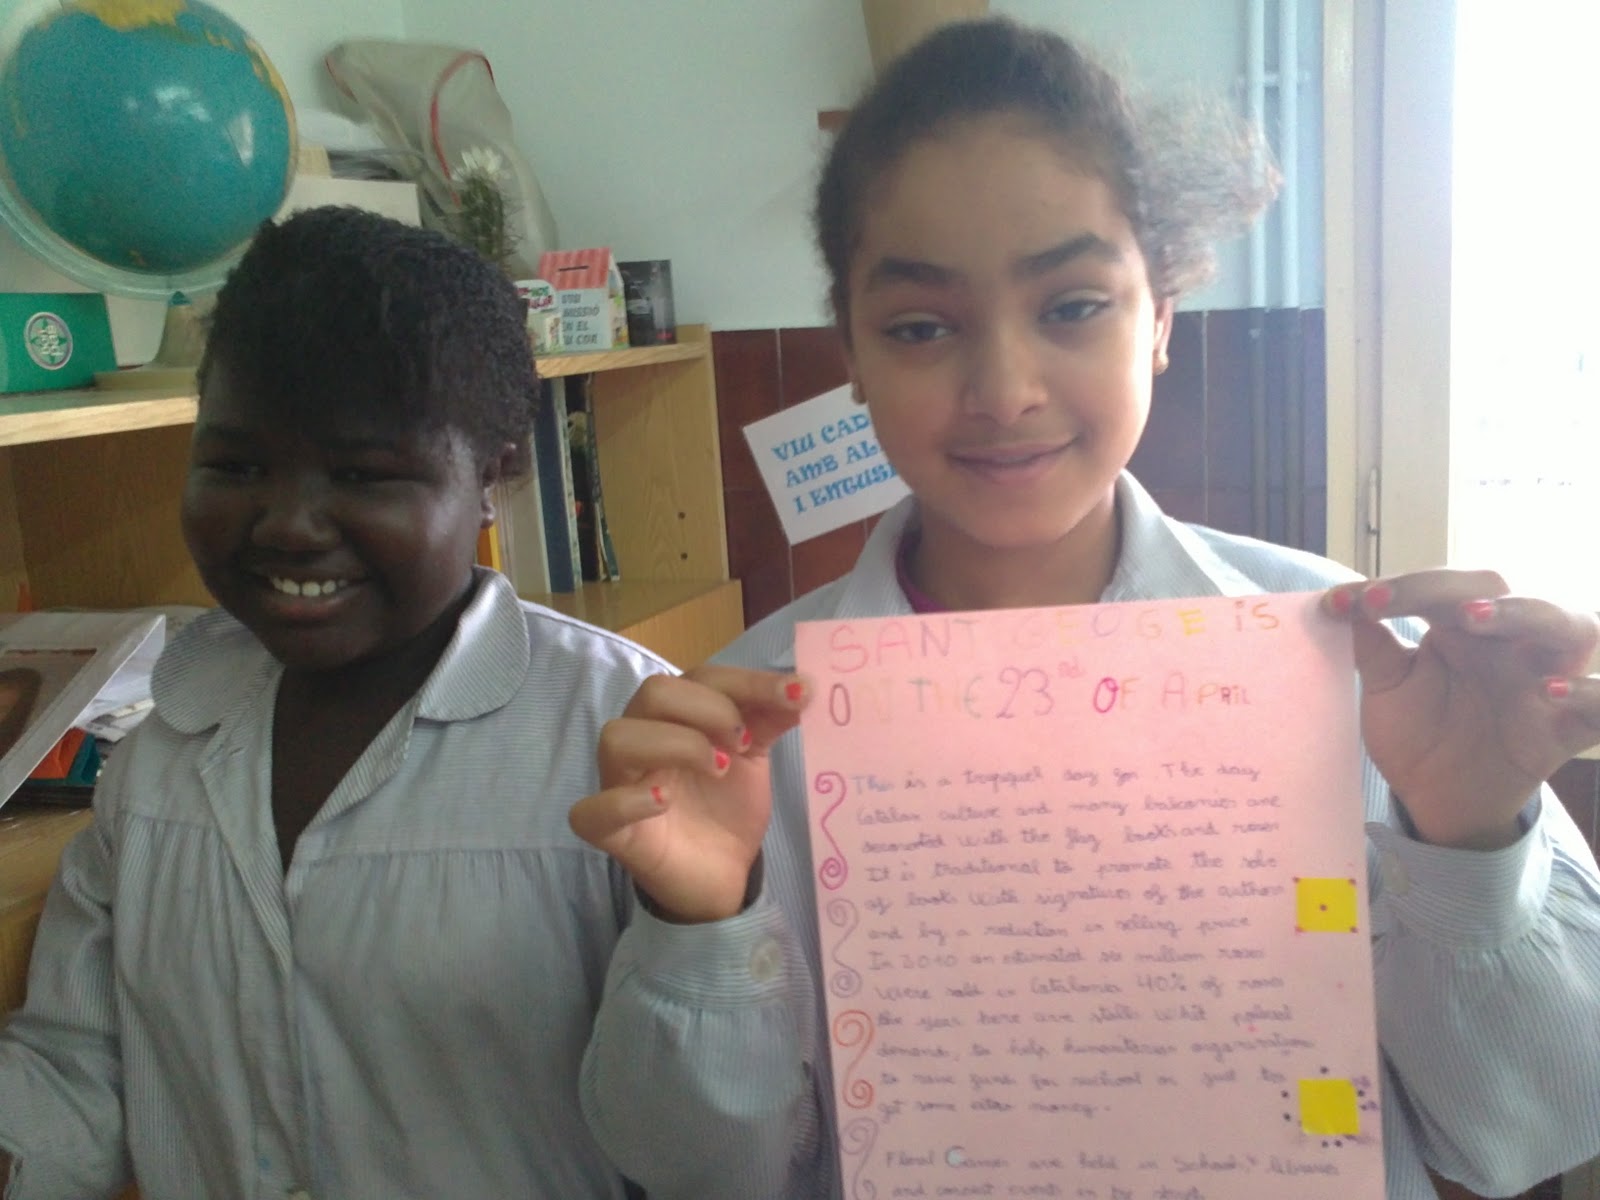 VIU
MISSIO
EN EL
TEU COR
VIU CAD
AMB AL
I ENTUSI
SANT GEOGE is
ON THE 23rd OF APRIL
This is a day for The day
Catalan culture and many balconies are
decorated with the flag books and roses
It is traditional to promote the sale
of books with signatures of the authors
and by a reduction in selling price
In 2010 an estimated six million roses
were sold in Catalonia 40% of roses
the year here are stalls whit
to help humanitarian organizations
to raise for school or just to
get some extra money.
Floral Games are held in Schools, libraries
and concert events in the street